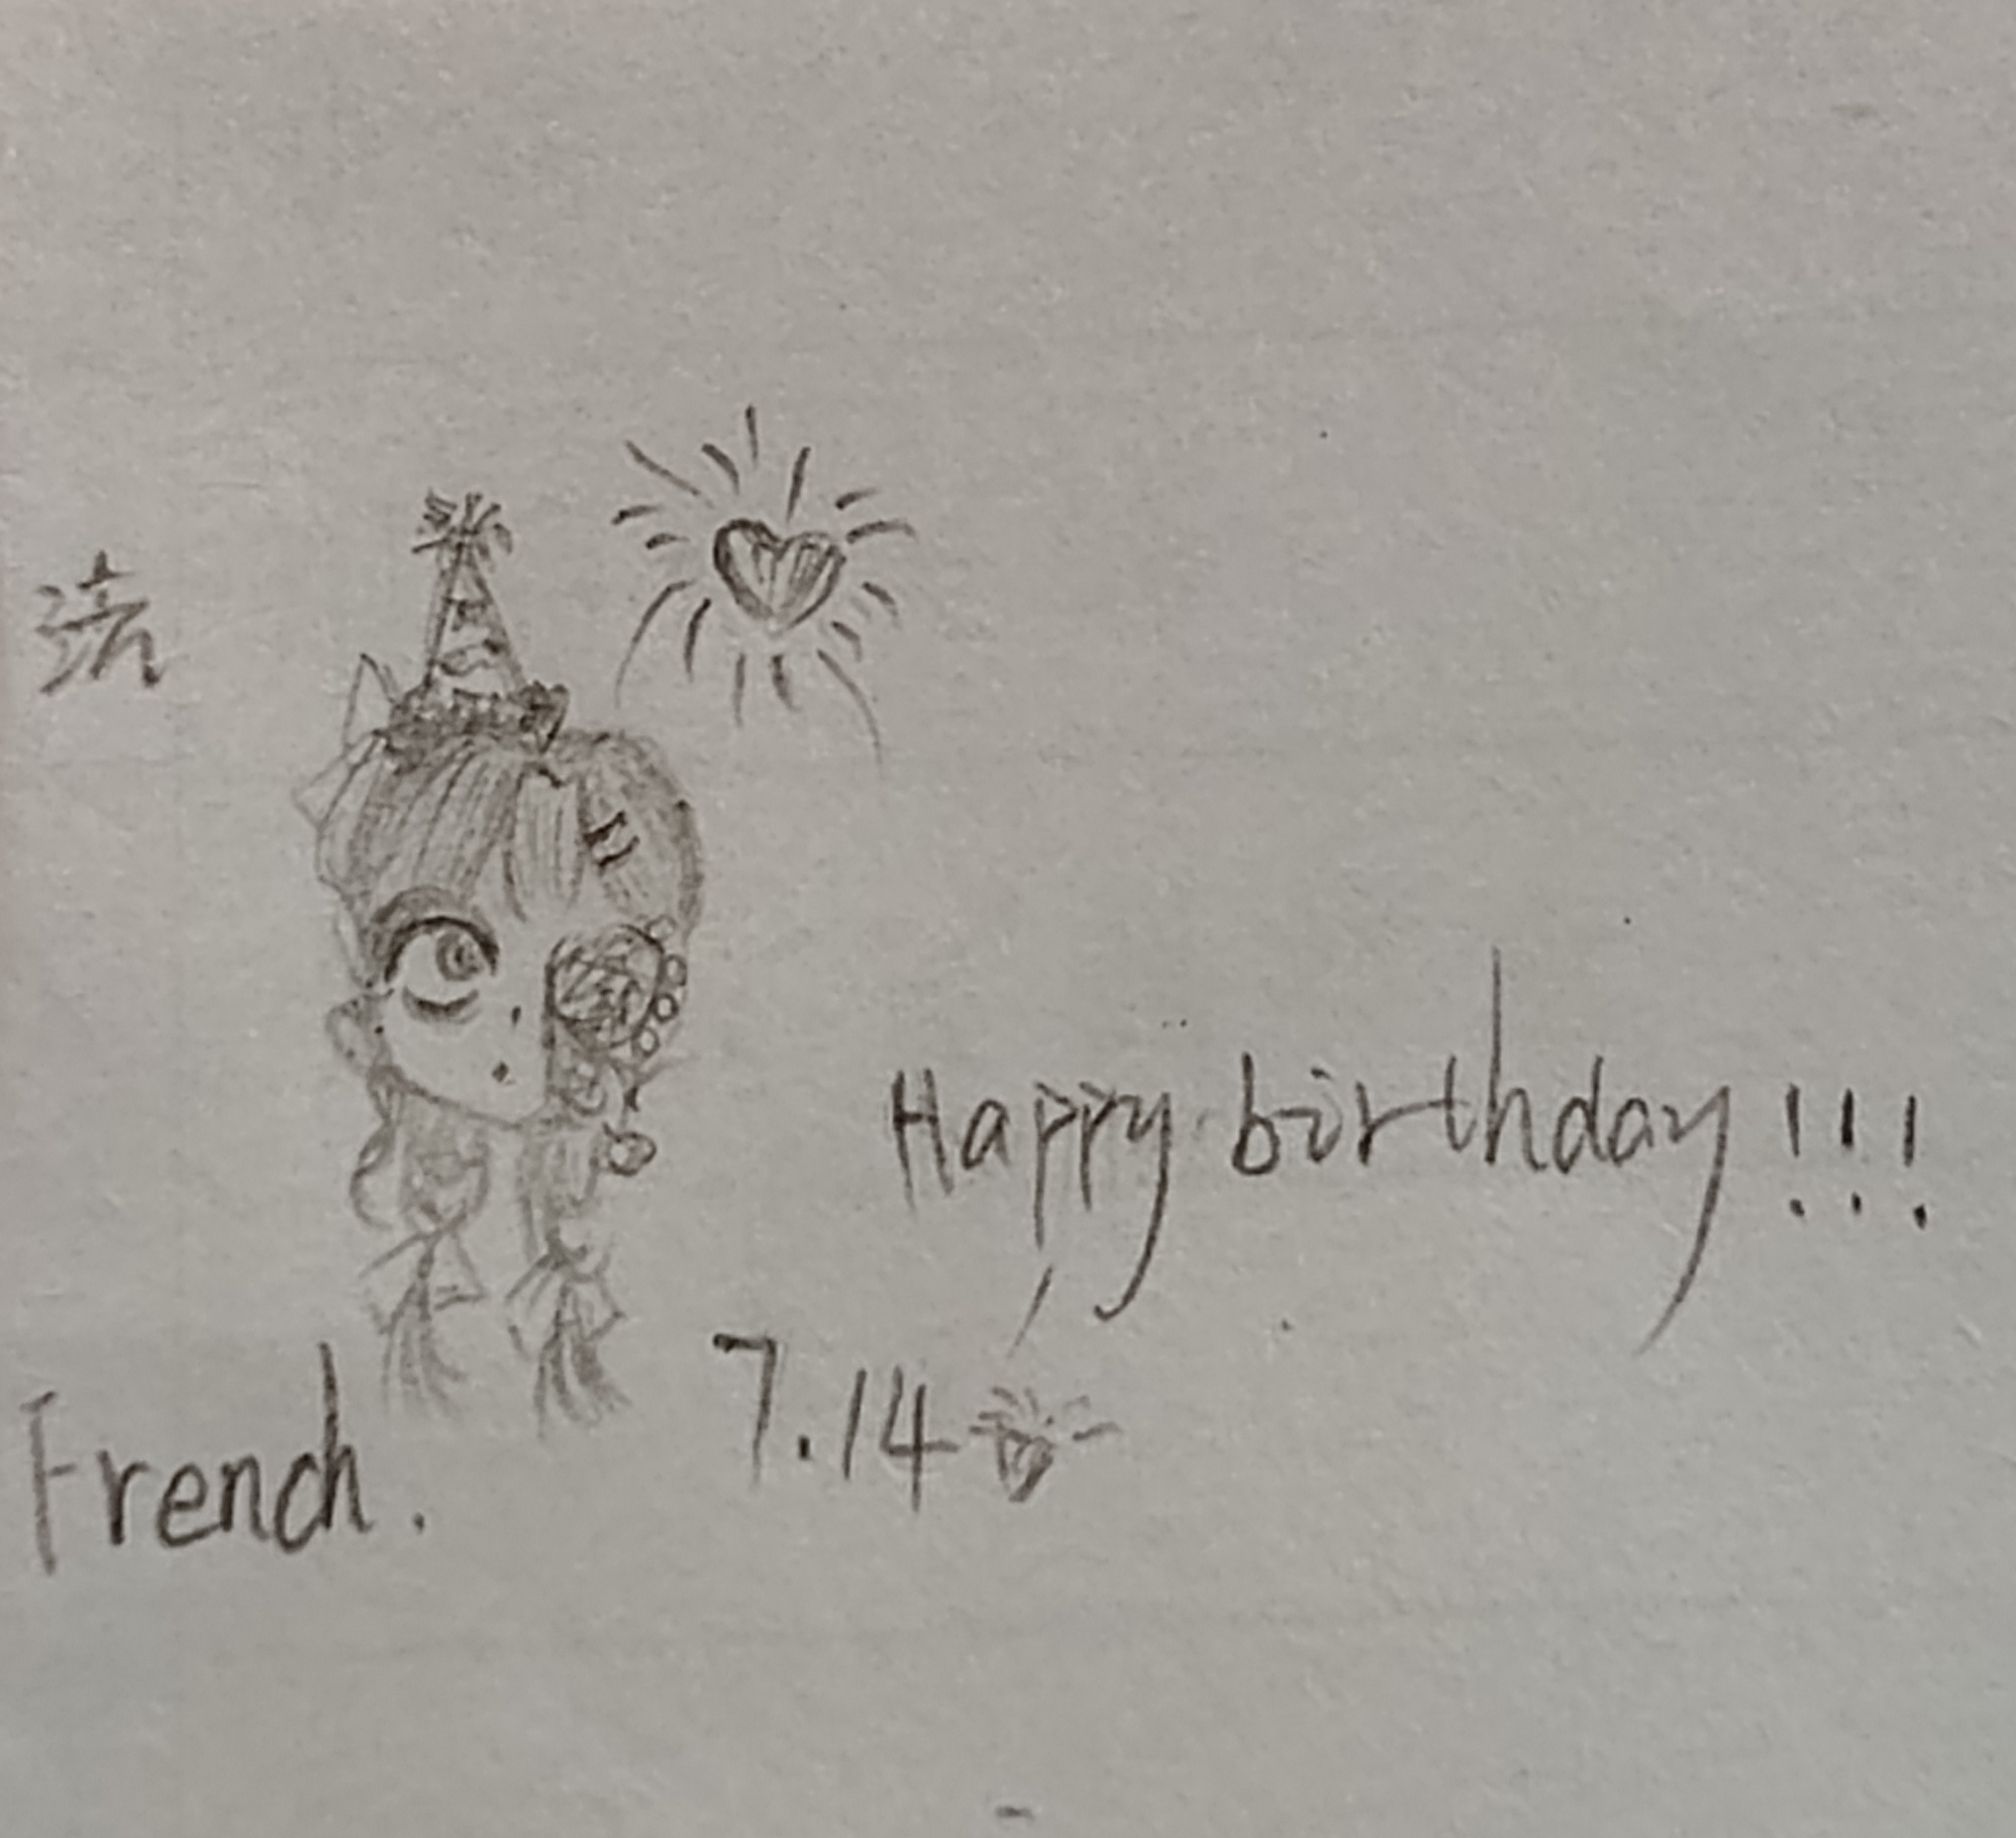 法
Happy birthday!!!
7.14
French.